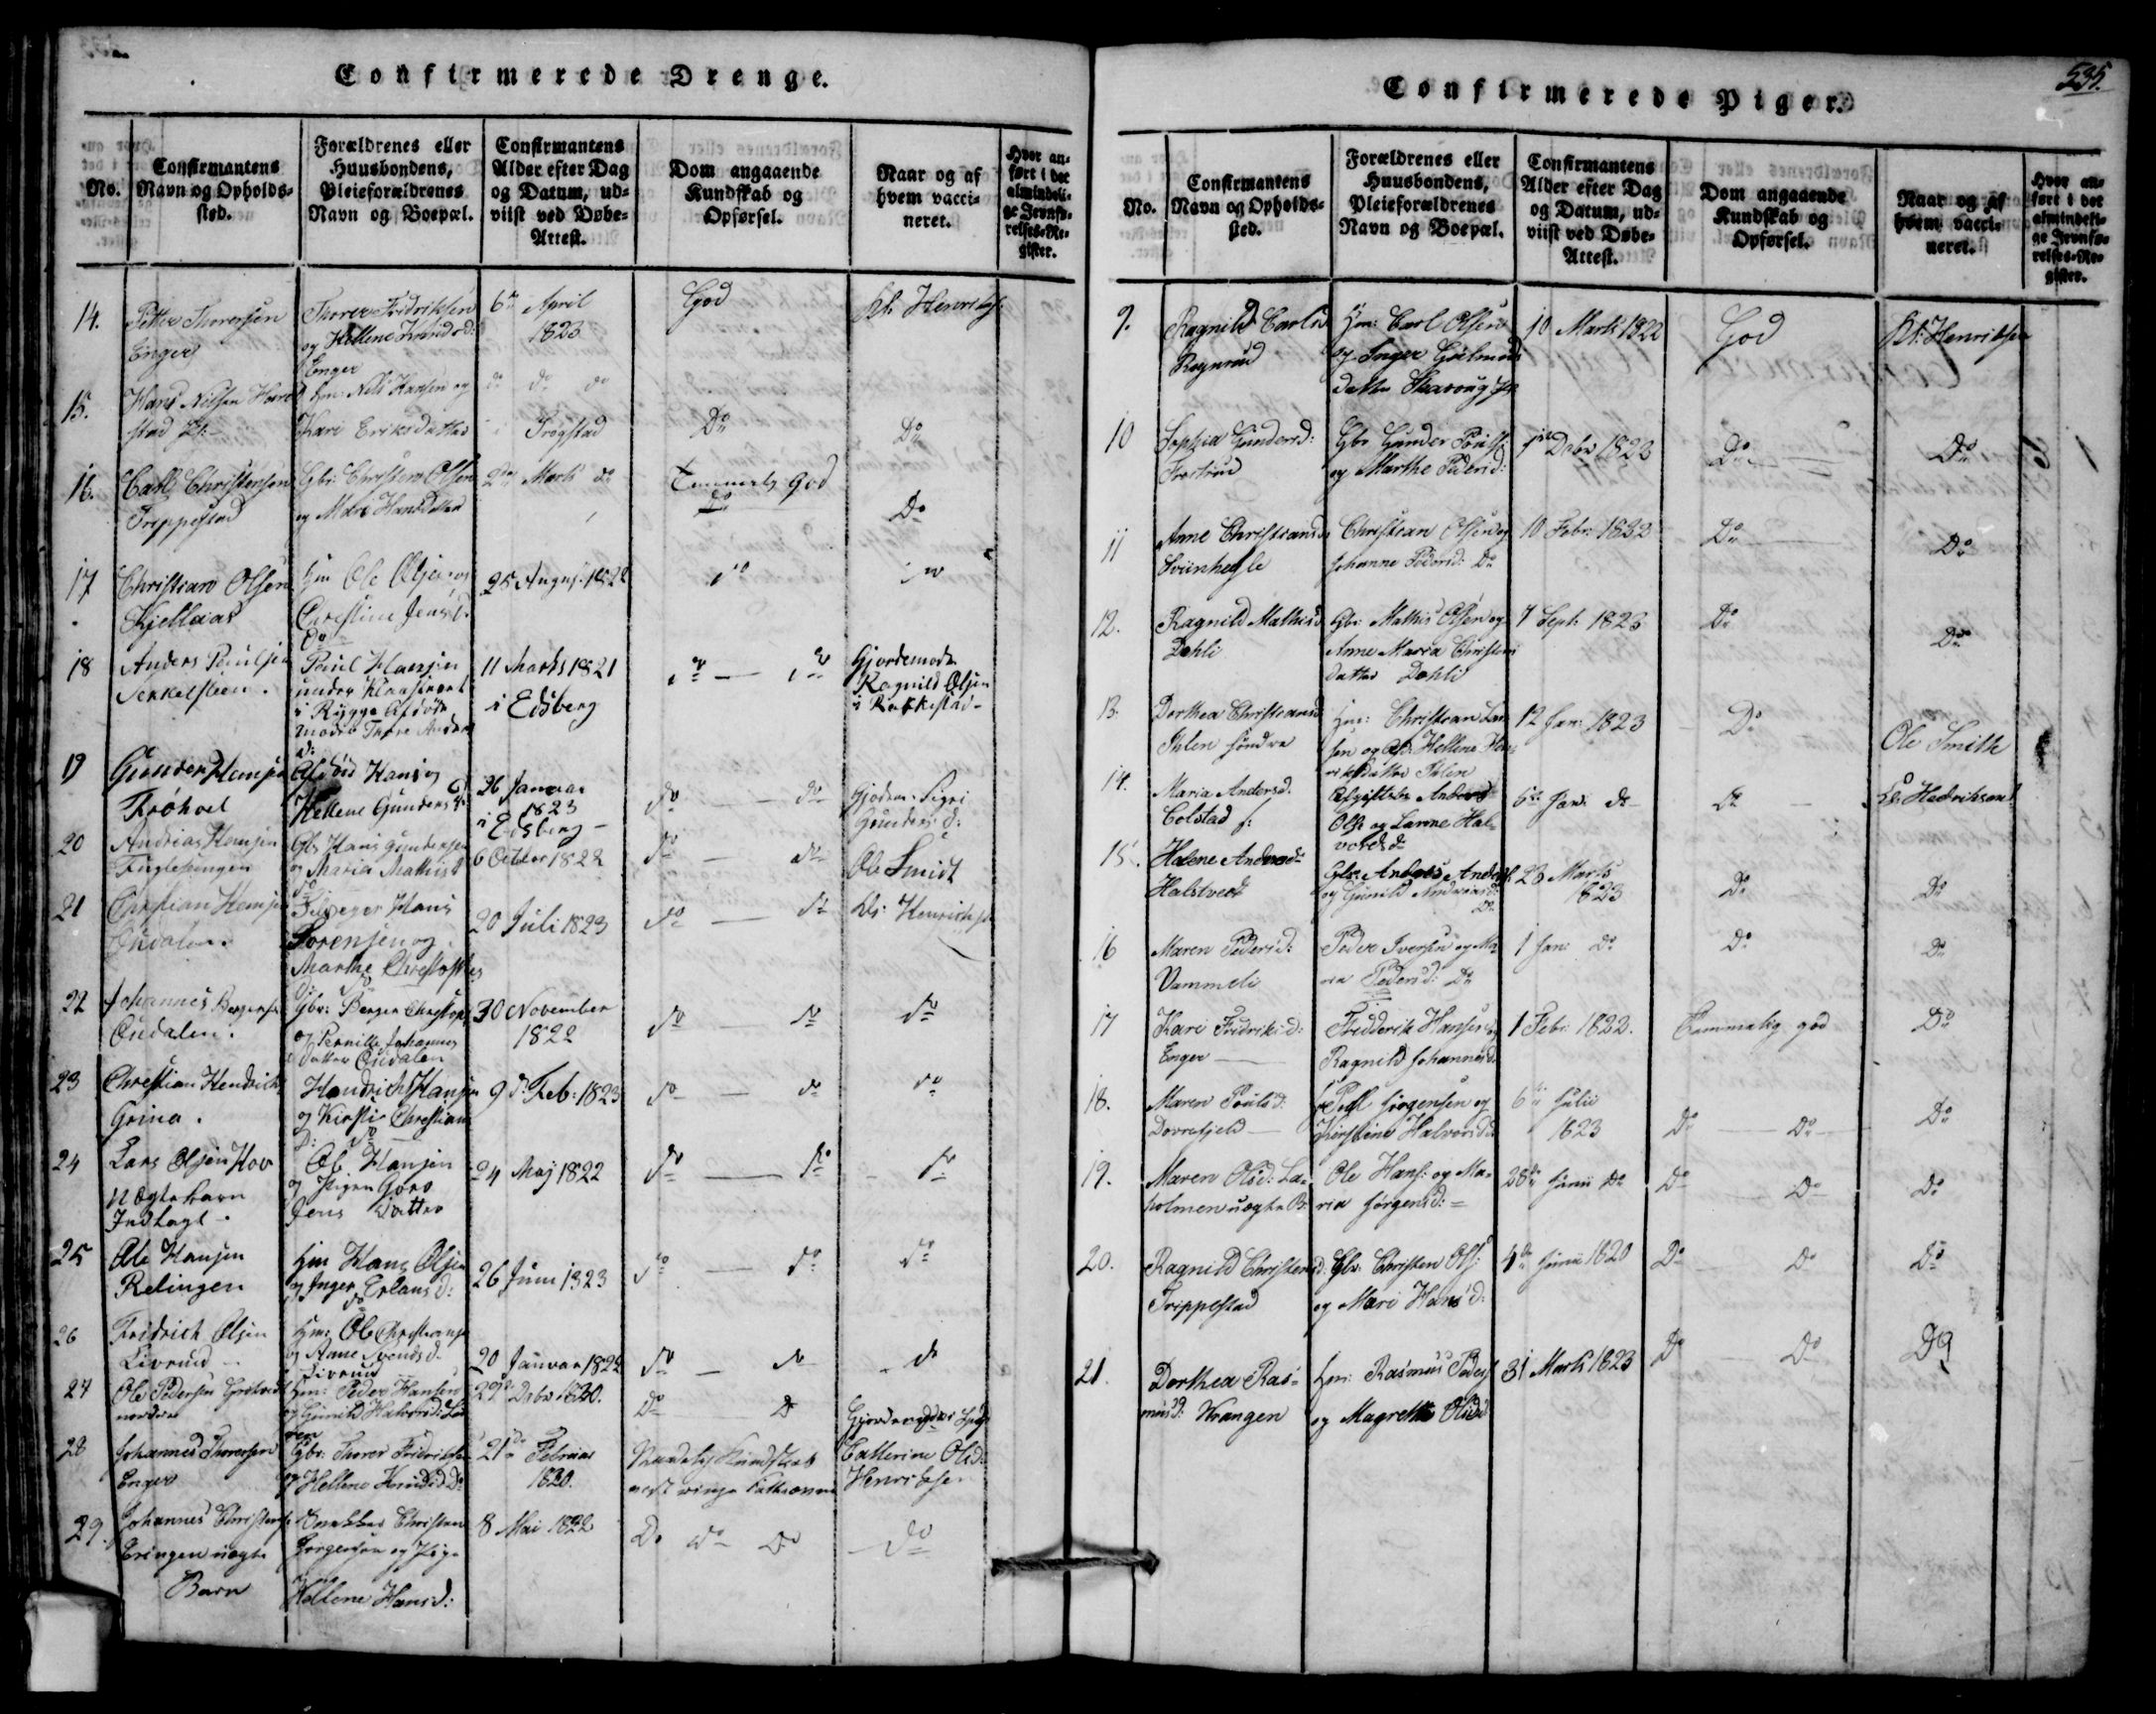 Confirmerede Drenge.
No.
Confirmantens
Navn og Opholds-
sted.
Forældrenes eller
Huusbondens,
Pleieforældrenes
Navn og Boepæl.
Confirmantens
Alder efter Dag
og Datum, ud-
viist ved Døbe-
Attest.
Dom angaaende
Kundskab og
Opførsel.
Naar og af
hvem vacci-
neret.
Hvor an-
ført i det
almindeli-
ge Jevnfø-
relses-Re-
gister.
14.
Petter Thorersen
Enger
Thorer Fridriksen
og Hellene
Enger
6te April
1823
God
Kl. Henriks.
15.
Hans Nilsen
stad
Hm: Nils Hansen og
Kari Eriksdatter
do do do
Trøgstad
Do
Do
16.
Carl Christensen
Trippestad
Gbr: Christen Olsen
og Mari Hansdatter
Marts do
Temmelig God
do
Do
17
Christian Olsen
Kjellaas
Hm Ole Olsen og
Christine Jensd.
do
25 August 1822
do
do
18
Anders Paulsen
Paul Hansen
under
i Rygge Afdøde
Moder Thore Anders
d:
11 Marts 1821
i Edsberg
do — do
Gjordemoder
Ragnild Olsen
i Rakkestad
19
Gunder Hansen
Afdød Hans og
Hellene Gunders d:
26 Januar
1823
i Edsberg
do — do
Gjodem. Sigri
Gunders d:
20
Andreas Hansen
Fuglesengen
Gbr Hans Gundersen
og Maria Mathisd
do
6 October 1822
do — do
Ole Smidt
21
Christian Hansen
Oudalen.
Selveyer Hans
Sorensen og
Marthe Christoffers
d: do
20 Juli 1823
do — do
Kl: Henriks
22
Johannes Bergers.
Oudalen.
Gbr: Berger Christop
og Pernille Johannes
datter Oudalen
30 November
1822
do — do
do
23
Christian Hendrichs
Grina.
Hendrich Hansen
og Kirsti Christians
d: do
9de Feb: 1823
do — do
do
24
Lars Olsen Hov
u Ægte barn
Indlagt -
Ole Hansen
og Pigen Goro
Jens Datter
24 Maj 1822
do — do
do
25
Ole Hansen
Relingen
Hm Hans Olsen
og Inger Erlans d:
do
26 Juni 1823
do — do
do
26
Fridrich Olsen
Livrud
Hm: Ole Christians
og Anne Svends d.
Livrud
20 Januar 1822
do — do
do
27
Ole Pedersen
nordre
Hm: Peder Hansen
og Gunild Halvorsd:
29de Decbr 1820.
Do Do
28
Johannes Thorersen
Enger
Gbr: Thorer Fridriksen
og Hellene Do
21de Februar
1820.
Maadelig Kundskab
Catherine Olsd:
Henriksen
29.
Johannes Christens.
Eringen uægte
Barn
Christen
Jørgensen og Pige
Hellene Hansd:
8 Mai 1822
Do do do
do
535.
Confirmerede Piger.
No.
Confirmantens
Navn og Opholds-
sted.
Forældrenes eller
Huusbondens,
Pleieforældrenes
Navn og Boepæl.
Confirmantens
Alder efter Dag
og Datum, ud-
viist ved Døbe-
Attest.
Dom angaaende
Kundskab og
Opførsel.
Naar og af
hvem vacci-
neret.
Hvor an-
ført i det
almindeli-
ge Jevnfø-
relses-Re-
gister.
9.
Ragnild Carlsd
Røgnrud
Hm: Carl Olsen
og Inger
datter
10 Marts 1822
God
Kl: Henriksen
10
Sophia Gundersd:
Gbr Gunder
og Marthe Pedersd:
Decbr 1822
Do
Do
11
Anne Christiansd
Sviinhefle
Christian Olsen og
Johanne Pedersd: Do
10 Febr: 1822
Do
Do
12.
Ragnild Mathisd
Dahli
Gbr: Mathis Olsen og
Anne Maria Christens
datter Dahli
7 Septr 1823
Do
Do
13.
Dorthea Christiansd
Ihlen søndre
Hm: Christian Lar
sen og Hellene Hen
riksdatter Ihlen
12 Jan: 1823
Do
Ole Smith
14.
Maria Andersd.
Colstad
Afgiftsbr Anders
Ols. og Lanne Hal-
vorsd.
6te Jan. do
Do
Kl: Hendriksen
15.
Helene Andersd
Halstvedt
Gbr: Anders Anders.
og Gunild Andreasd
Do
23 Marts
1823
Do
Do
16
Maren Pedersd:
Vammeli
Peder Iversen og Ma
ria Pedersd: Do
1 Jan: Do
Do
Do
17
Kari Fridriksd:
Enger
Fridderik Hansen og
Ragnild Johannesd.
1 Febr: 1822.
Temmelig god
Do
18.
Maren Poulsd:
Dovrefjeld
Poul Jørgensen og
Kirstine Halvorsd:
6te Julii
1823
Do — Do
Do
19.
Maren Olsd: La-
holmen uægte B:
Ole Hans: og Ma-
ria Jørgensd:
28de Junii Do
Do Do
Do
20.
Ragnild Christensd:
Trippestad
Gbr: Christen Ols:
og Mari Hans d:
4de Junii 1820
Do Do
Do
21.
Dorthea Ras-
musd: Wrangen
Hm: Rasmus Peders
og Magrethe Olsd:
31 Marts 1823
Do Do
Do